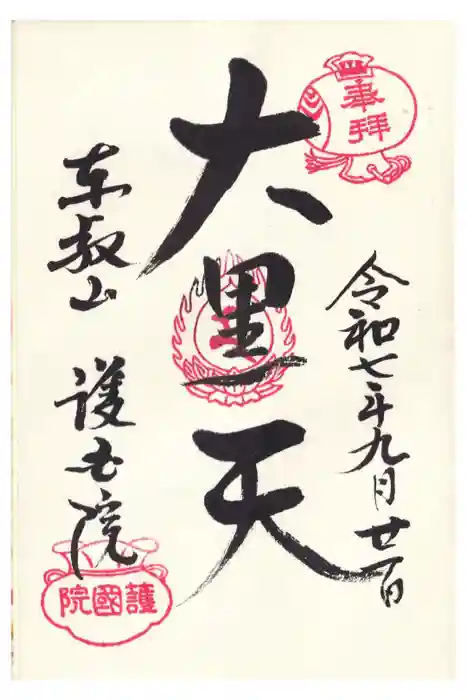 奉拝
令和七年九月廿一日
大黒天
東叡山 護国院
護國院